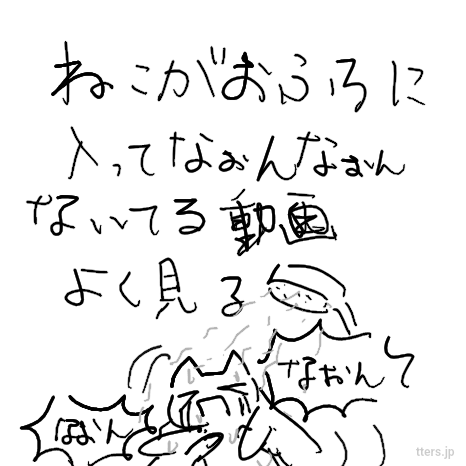 ねこがおふろに
入ってなおんなおん
ないてる動画
よく見る
なおんて
なおんて
tters.jp